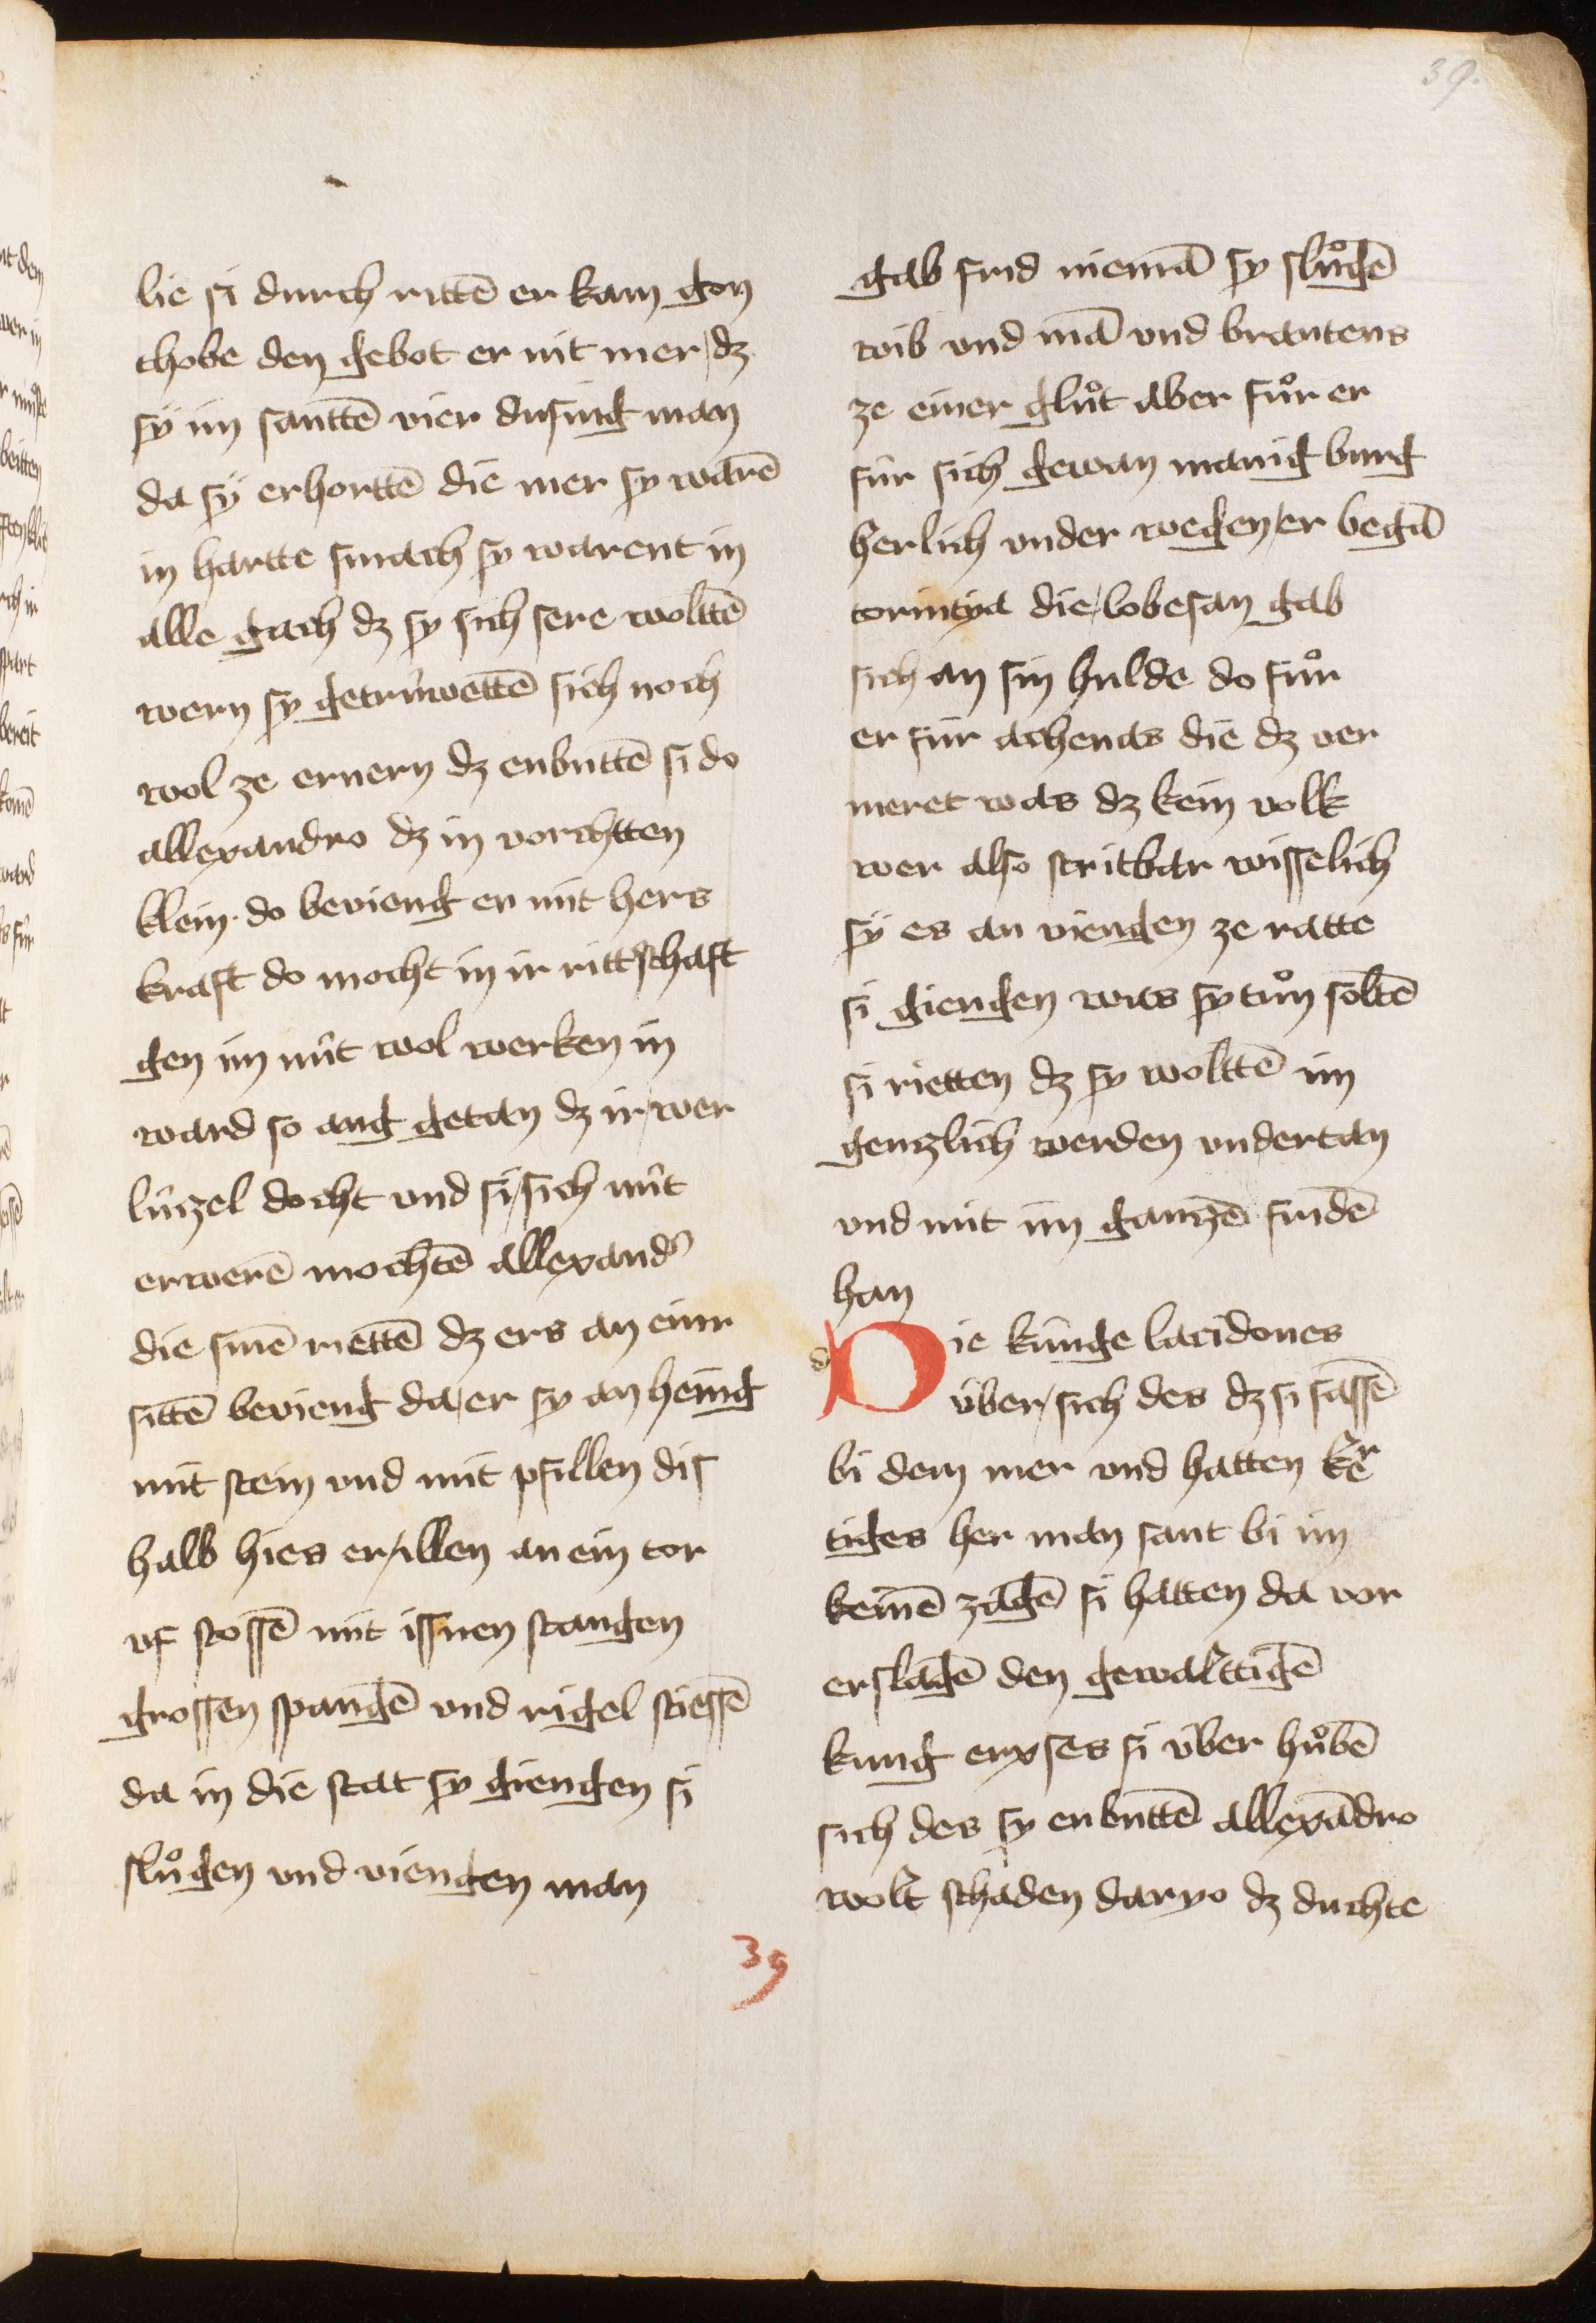 39.
lie si durch rittē er kam gon
thobe den gebot er nit mer dz
sÿ im santtē vier dusing man
da sÿ erhorttē die mer sy warē
in hartte smach sy warent in
alle gach dz sy sich sere wolttē
wern sy getrúwettē sich noch
wol ze ernern dz enbuttē si do
allexandro dz in vorchtten
klein · do bevieng er mit hers
kraft do mocht in ir rittschaft
gen im nút wol werken in
ward so ang getan dz ir wer
lúzel docht vnd si sich nút
erwerē mochtē allexand᾽
die sinē riettē dz ers an einr
sittē bevieng da er sy an heing
mit stein vnd mit pfillen dis
halb hies er illen an ein tor
vf stossē mit issnen stangen
grossen spangē vnd rigel stiessē
da in die stat sy giengen si
slůgen vnd viengen man
gab frid niemā sy slůgē
wib vnd mā vnd brantens
ze einer glůt aber fůr er
fúr sich gewan manig burg
herlich vnder wegen er begā
corintya die lobesan gab
sich an sin hulde do fůr
er fúr athenas die dz ver
meret was dz kein volk
wer also stritbar wisselich
sÿ es an viengen ze ratte
si giengen was sy tůn soltē
si rietten dz sy wolttē im
genzlich werden vndertan
vnd mit im ganzē fridē
han
d
Die kúnge lacidones
úber sich des dz si sassē
bi dem mer vnd hatten kre
tiges her man fant bi im
keinē zagē si hatten da vor
erslagē den gewalttigē
kung erxses si úber hůbē
sich des sy enbuttē allexādro
wolt schaden daryo dz duchte
39